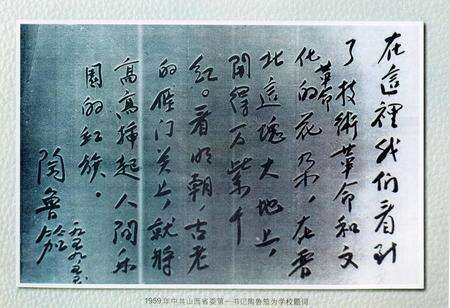 在這裡我们看到
了技術革命和文
化革命的花朵，在晋
北這塊大地上，
開得万紫千
红。看明朝，古老
的雁门关上，就将
高高插起人間乐
園的红旗。
陶魯笳
一九五九
1959年中共山西省委第一书记陶鲁笳为学校题词